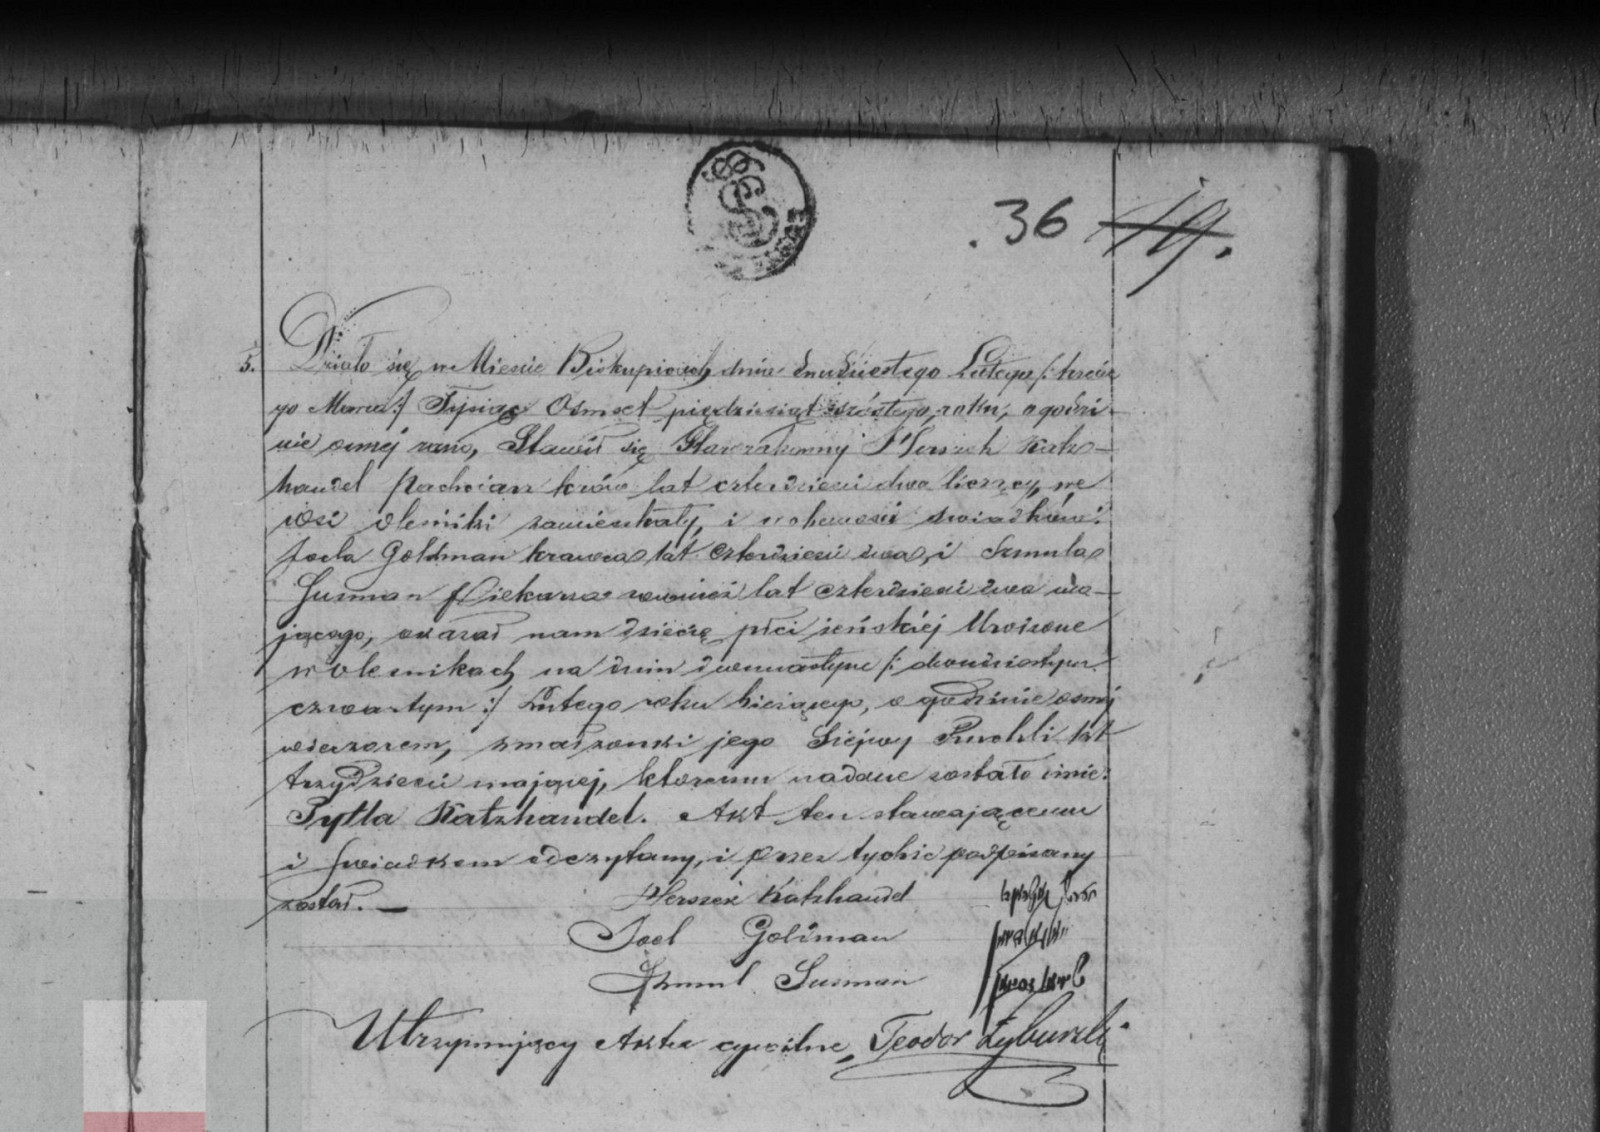 36 19.
5. Działo się w Mieście Biskupicach dnia dwudziestego Lutego /: trzecie
go Marca :/ Tysiąc Ośmset pięćdziesiąt szóstego, roku, o godzi-
nie osmej rano, Stawił się Starozakonny Herszek Katz-
handel Pachciarz krów lat czterdzieści dwa liczący, we
wsi Oleśniki zamieszkały, i w obecności świadków:
Joela Goldman krawca lat czterdzieści dwa, i Szmula
Susman Piekarza również lat czterdzieści dwa ma-
jącego, okazał nam dziecię płci żeńskiej Urodzone
w Olesnikach na dniu dwunastym /: dwudziestym
czwartym :/ Lutego roku bieżącego, o godzinie osmej
wieczorem, z małżonki jego Siejwy Ruchli lat
trzydzieści mającej, któremu nadane zostało imie:
Pytla Katzhandel. Akt ten stawającemu
i świadkom odczytany, i przez tychże podpisany
został. —
Herszek Katzhandel
Joel Goldman
Szmul Susman
Utrzymujący Akta cywilne, Teodor